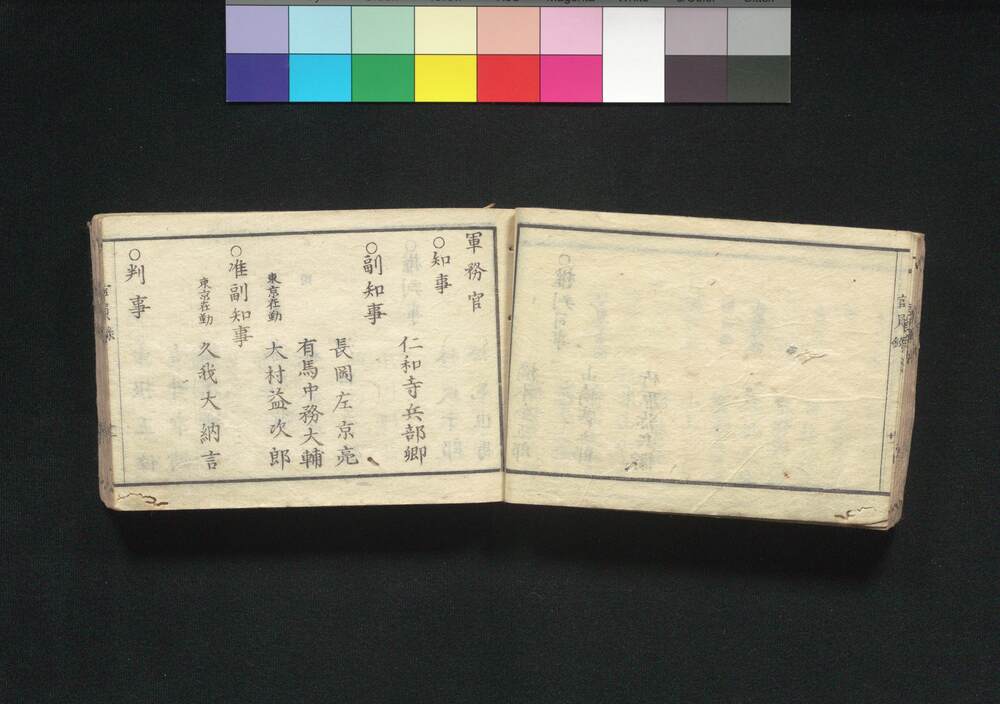 軍務官
○知事
仁和寺兵部卿
○副知事
長岡左京亮
有馬中務大輔
東京在勤
大村益次郎
○准副知事
東京在勤
久我大納言
○判事